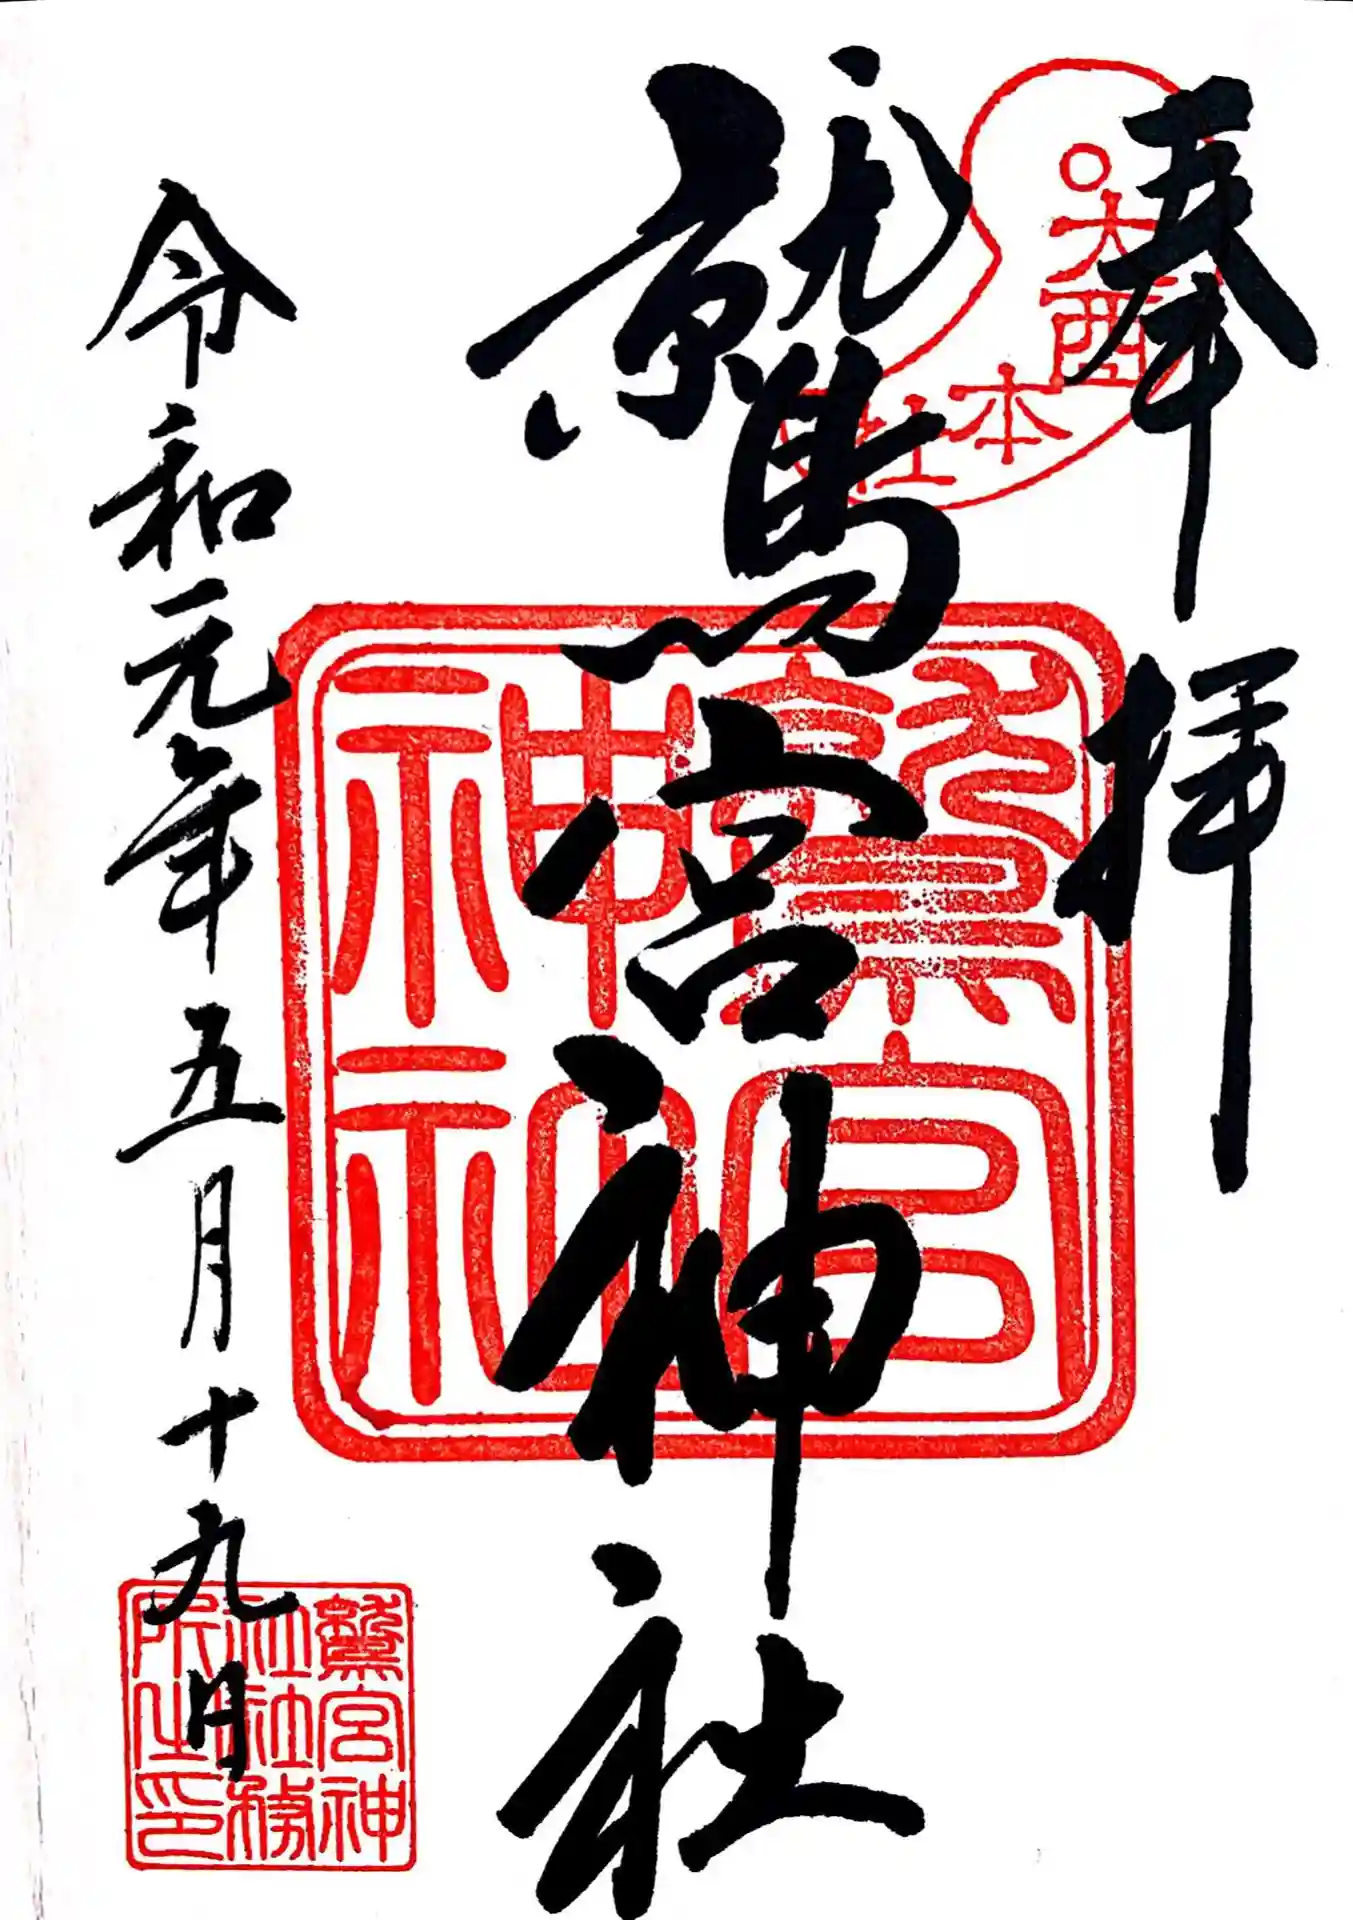 奉拝
大酉
本社
鷲宮神社
鷲宮神社
令和元年五月十九日
鷲宮神
社社務
所之印